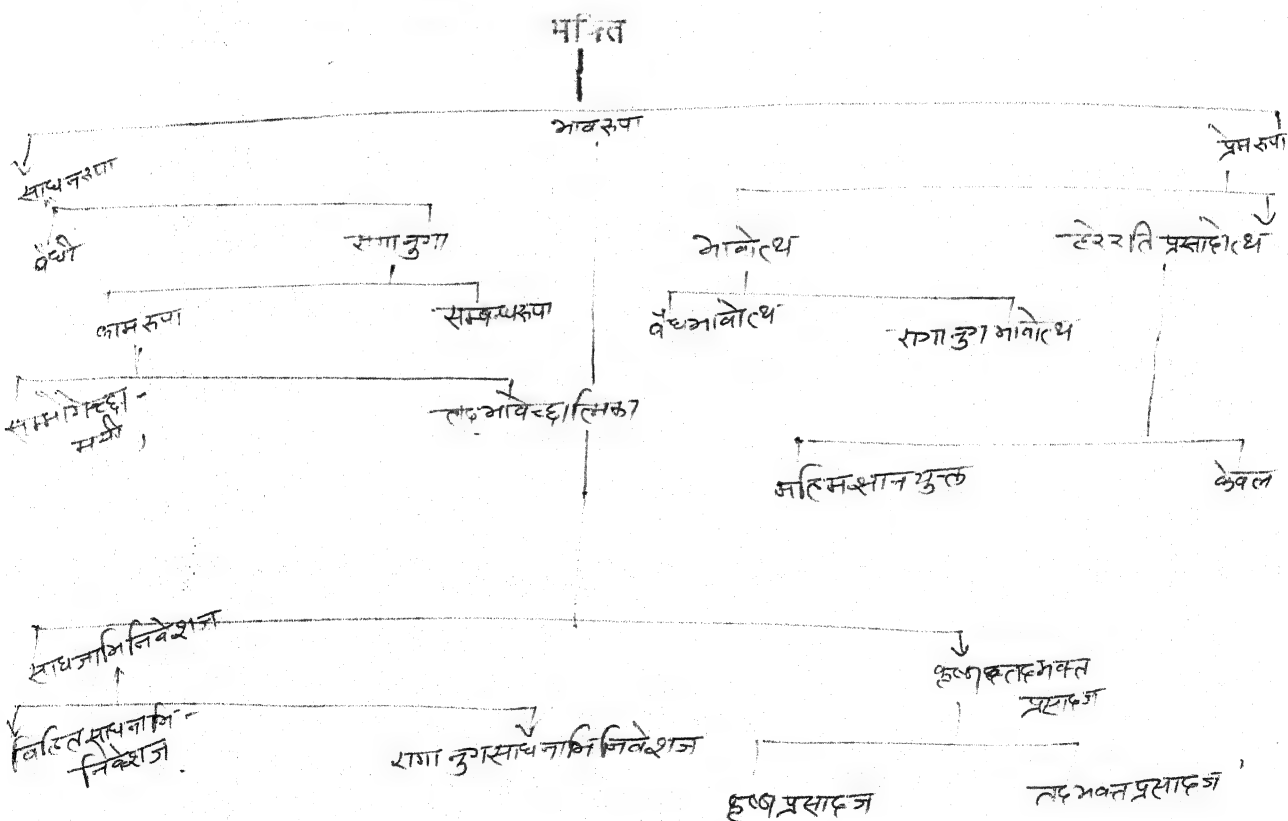 भक्ति
भावरूपा
प्रेमरूपा
साधनरूपा
वैधी
रागानुगा
भावोत्थ
हरेरति प्रसादोत्थ
कामरूपा
सम्बन्धरूपा
वैधभावोत्थ
रागानुग भावोत्थ
सम्भोगेच्छा-
मयी,
तद्भावेच्छात्मिका
महिमज्ञानयुक्त
केवल
साधनाभिनिवेशज
कृष्ण
तदभक्त
प्रसादज
विहित साधनाभि-
निवेशज
रागानुगसाधनाभिनिवेशज
कृष्ण प्रसादज
तदभक्त प्रसादज